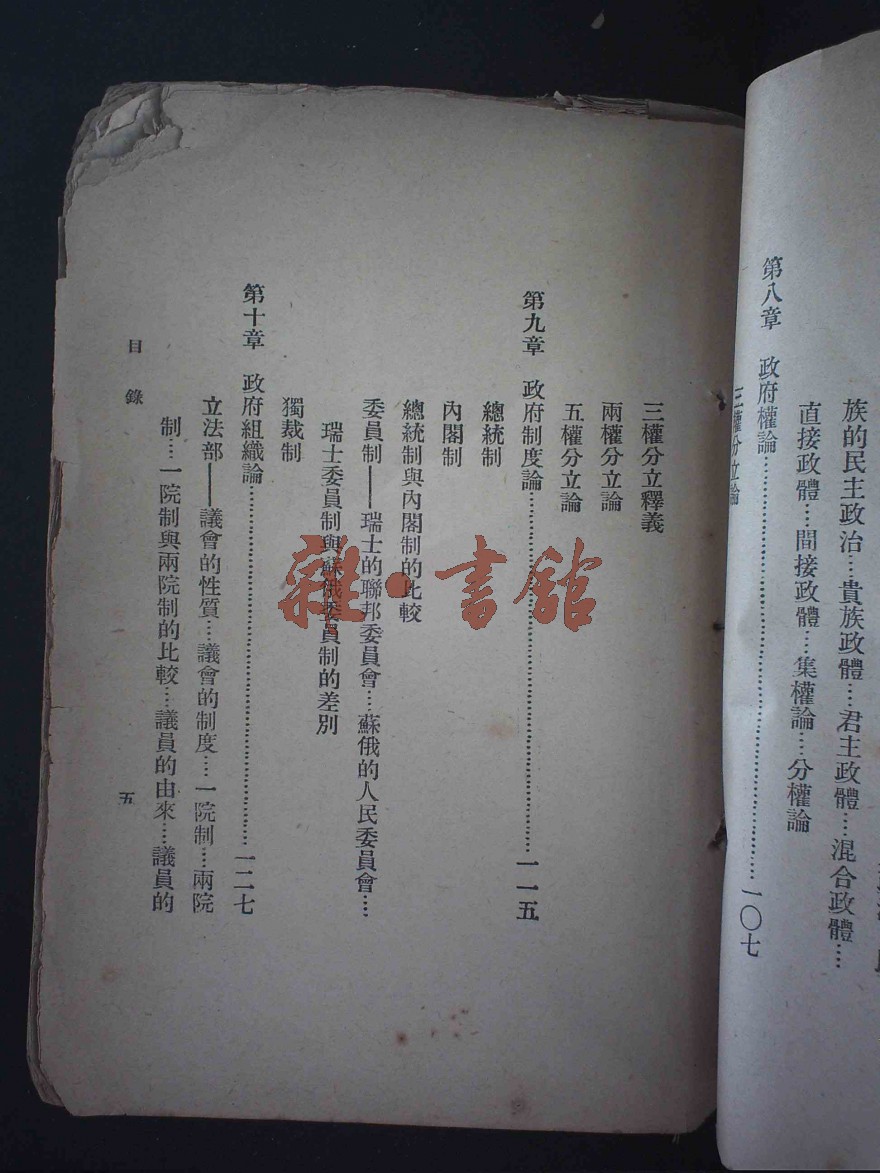 族的民主政治…貴族政體……君主政體……混合政體……
直接政體……間接政體……集權論……分權論
第八章　政府權論……一〇七
三權分立論
三權分立釋義
兩權分立論
五權分立論
第九章　政府制度論……一一五
總統制
內閣制
總統制與內閣制的比較
委員制——瑞士的聯邦委員會……蘇俄的人民委員會……
瑞士委員制與蘇俄委員制的差別
獨裁制
第十章　政府組織論……一二七
立法部——議會的性質……議會的制度……一院制……兩院
制……一院制與兩院制的比較……議員的由來……議員的
目錄
五
雜·書館